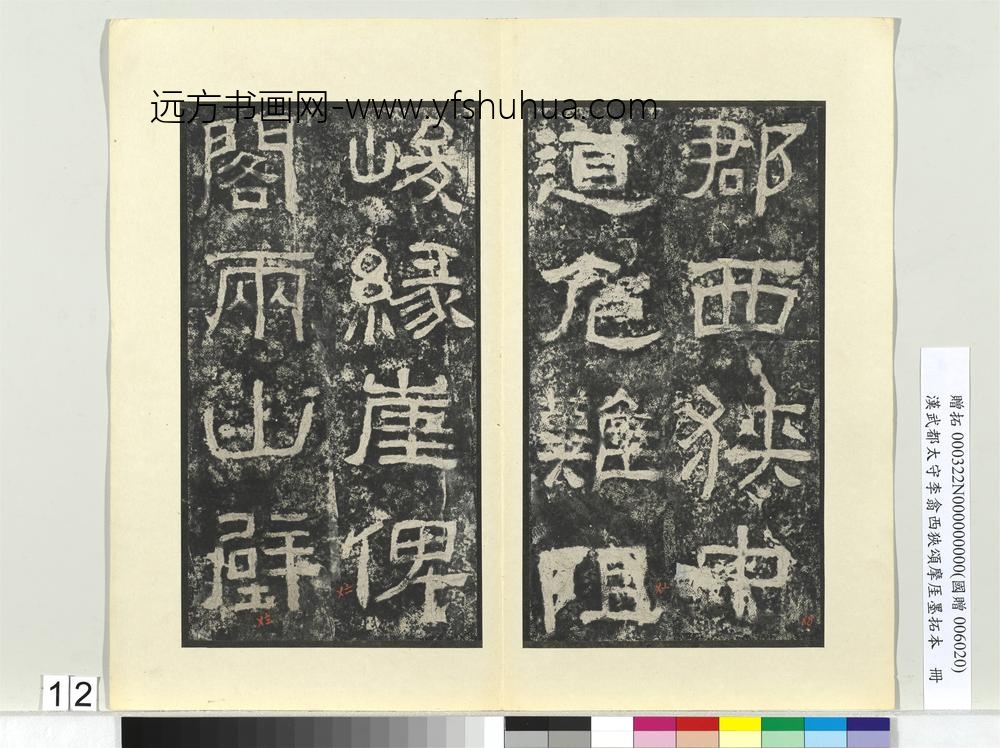 远方书画网-www.yfshuhua.com
郡西狹中
道危難阻
峻緣崖俾
閣兩山壁
贈拓 000322N000000000(國贈 006020)
漢武都太守李翕西狹頌摩厓墨拓本 冊
12